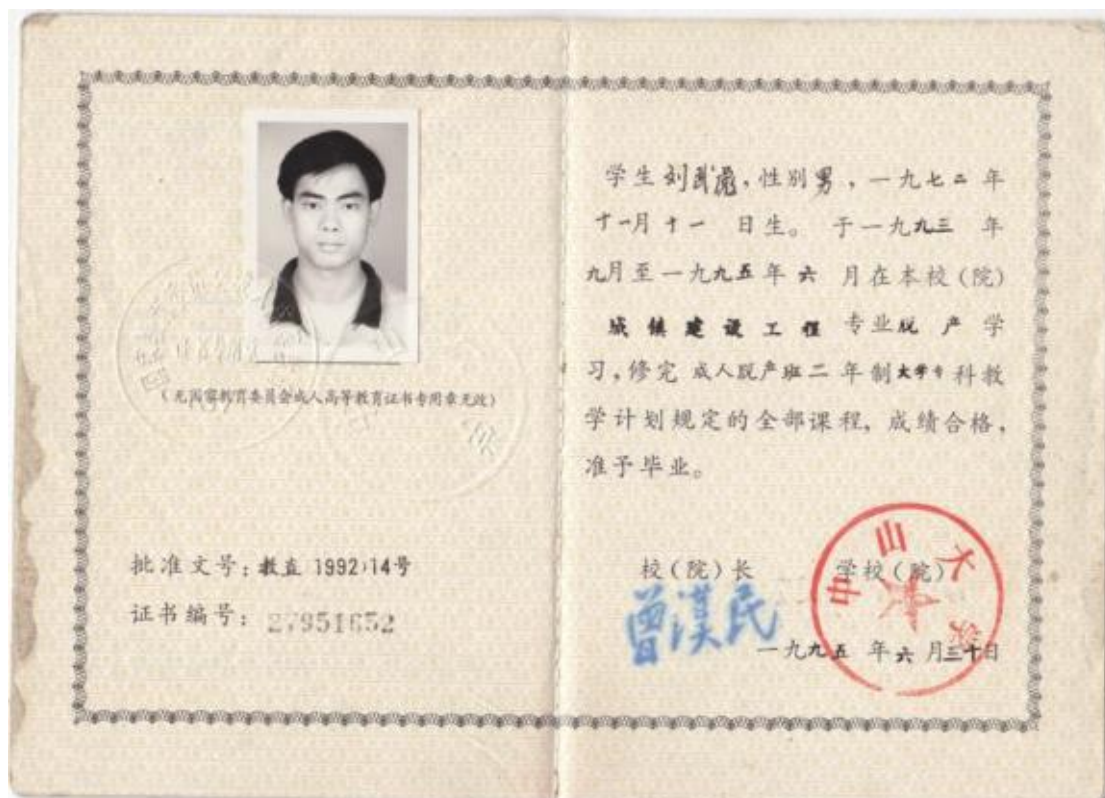 (无国家教育委员会成人高等教育证书专用章无效)
批准文号：教直 1992)14号
证书编号： 27951652
学生刘武彪，性别男，一九七二年
十一月十一 日生。 于一九九三 年
九月至一九九五年六 月在本校(院)
城镇建设工程 专业脱产学
习，修完 成人脱产班二 年制大学专科教
学计划规定的全部课程，成绩合格，
准予毕业。
校(院)长 学校(院)
曾汉民
中山大学
一九九五 年六 月三十日